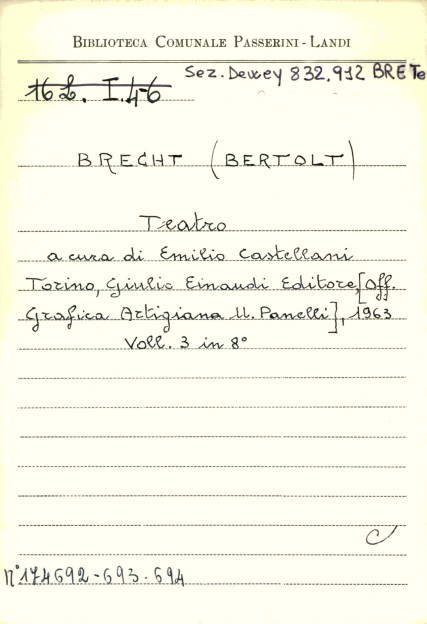 BIBLIOTECA COMUNALE PASSERINI - LANDI
Sez. Dewey 832.912 BRE Te
16 L. I.46
BRECHT (BERTOLT)
Teatro
a cura di Emilio Castellani
Torino, Giulio Einaudi Editore, [Off.
Grafica Artigiana U. Panelli], 1963
Voll. 3 in 8°
C
N° 174692-693-694